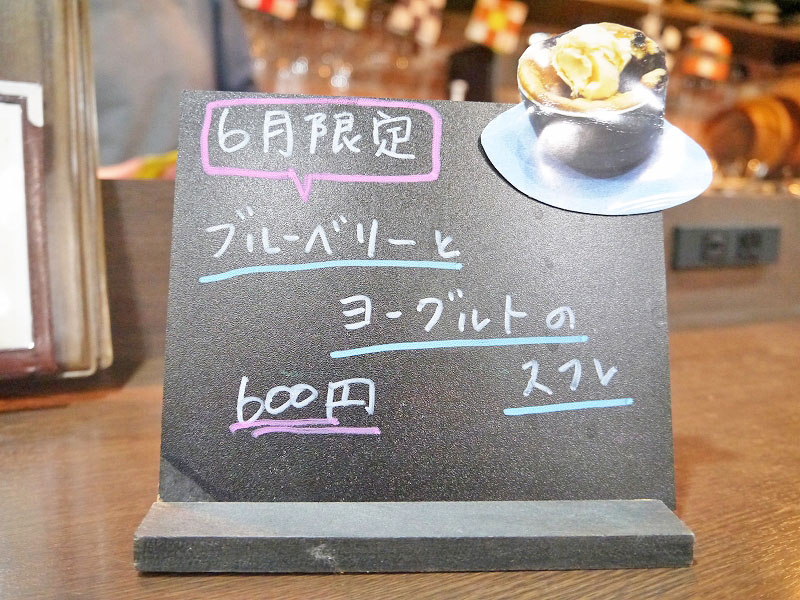 6月限定
ブルーベリーと
ヨーグルトの
スフレ
600円